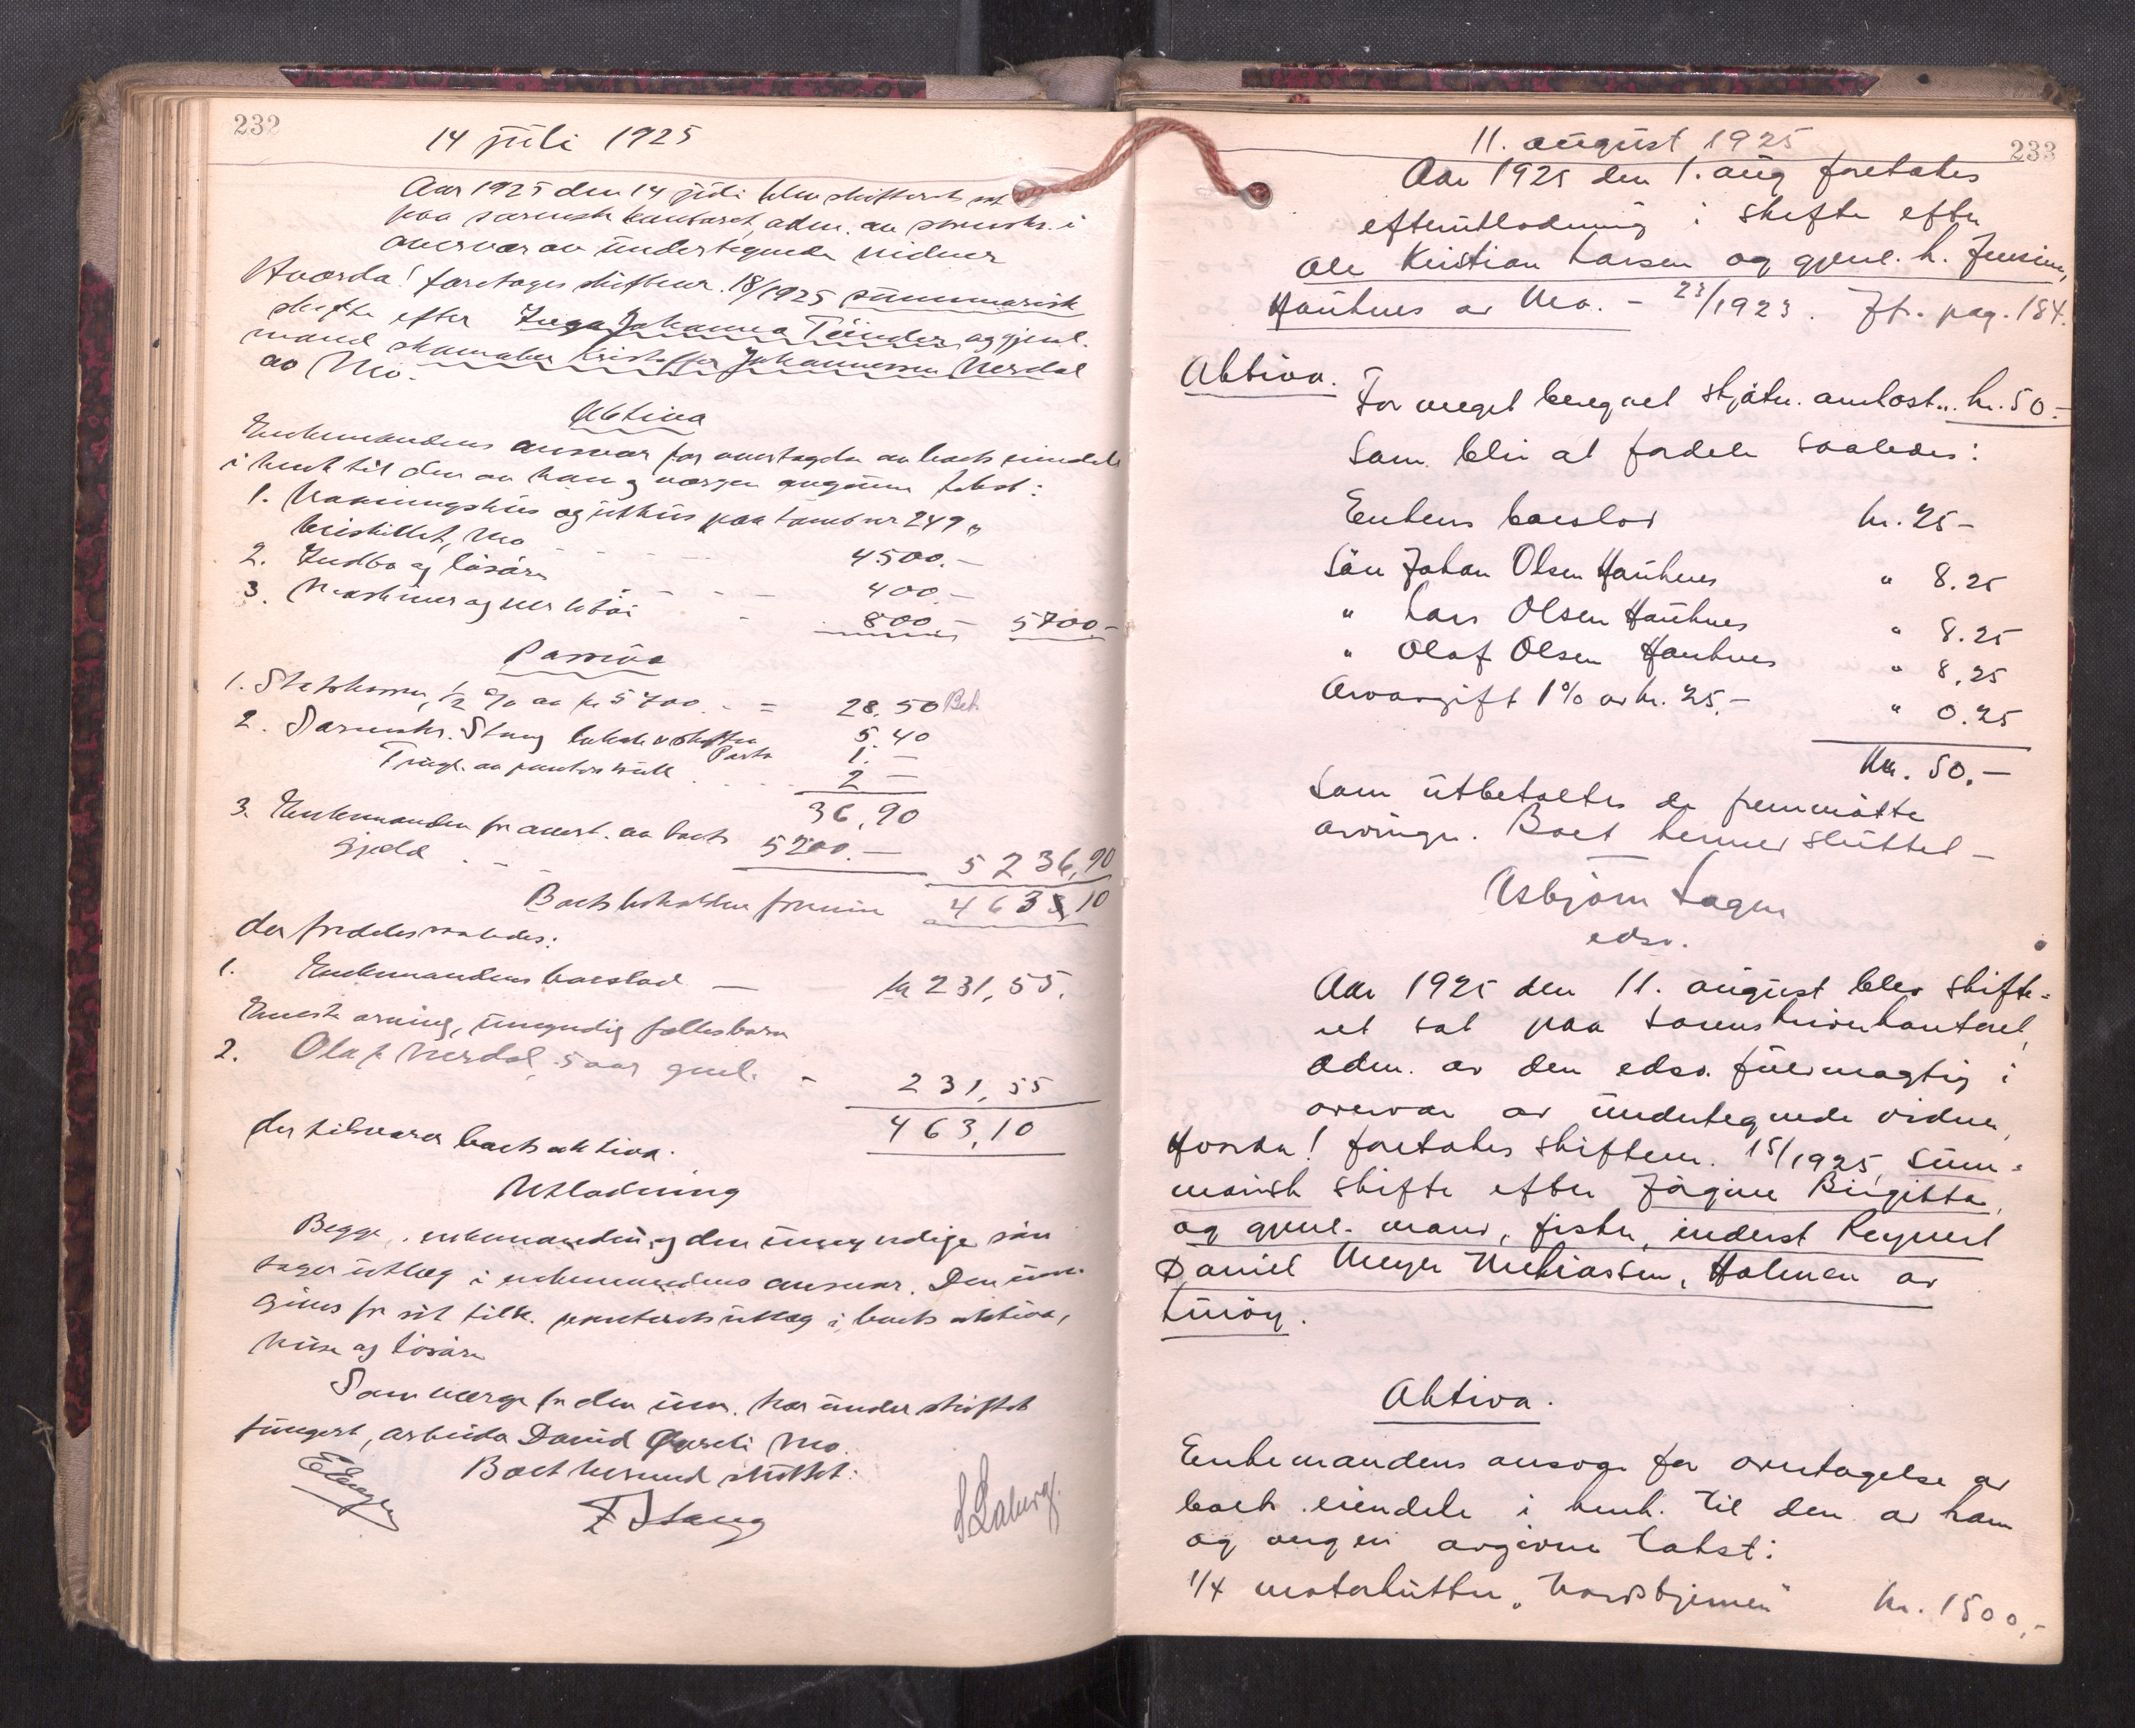 232
14 juli 1925
Aar 1925 den 14 juli blev skifteret sat
paa sorenskr.kontoret, adm. av sorenskr. i
overvær av undertegnede vidner
Hvorda! foretages skiftenr. 18/1925 summarisk
skifte efter Inga Johanna Teinder og gjenl.
mand skomaker Kristoffer Johannessen Nerdal
av Mo.
Aktiva
Enkemandens ansvar for overtagelse av boets eiendele
i henh til den av ham og vergen avgivne takst:
1. Vaaningshus og uthus paa tomt nr 249
Mo
4500.-
2. Indbo og løsøre
400.-
3. Maskiner og verktøi
800.- 5700.-
Passiva
1. Statskassen, 1/2 % av kr 5700. - = 28.50 Bet.
2. Sorenskr. Stang 5.40
Porto 1.-
Tingl. av 2 -
36,90
3. Enkemanden for overt. av boets
gjæld - 5200.- 5236,90
Boets beholdne formue 463,10
der fordeles saaledes:
1. Enkemandens boeslod - kr 231,55.
Eneste arving, umyndig fællesbarn
2. Olaf Nerdal, 5 aar gml. - 231,55
463,10
der tilsvarer boets aktiva.
Utlodning
Begge, enkemanden og den umyndige søn
tager utlæg i enkemandens ansvar. Den um.
gives for sit tilk. panterets utlæg i boets aktiva,
huse og løsøre
Som verge for den um. har under skiftet
fungert, arbeider David Mo.
Boet hermed sluttet.
F Stang
233
11. august 1925
Aar 1925 den 1. aug foretates
efterutlodning i skifte efter
Ole Kristian Larsen og gjenl. h. Jensine,
Hauknes av Mo. - 23/1923. Jfr. pag. 184.
Aktiva.
For meget beregnet skjøtn. omkost... kr. 50.-
Som blir at fordele saaledes:
Enkens boeslod kr. 25 -
Søn Johan Olsen Hauknes " 8.25
" Lars Olsen Hauknes " 8.25
" Olaf Olsen Hauknes " 8.25
Arveavgift 1% av kr. 25.- " 0.25
Kr. 50.-
Som utbetaltes de fremmøtte
arvinger. Boet hermed sluttet -
Asbjørn Lagen
edsv.
Aar 1925 den 11. august blev skifte-
ret sat paa sorenskriverkontoret,
adm. av den edsv. fuldmægtig i
overvær av undertegnede vidner,
Hvorda! foretates skiftenr. 15/1925, sum-
marisk skifte efter Jørgine Birgitta,
og gjenl. mand, fisker, inderst Reynert
Daniel Meyer Mekiassen, Holmen av
Lurøy.
Aktiva.
Enkemandens ansvar for overtagelse av
boets eiendele i henh. til den av ham
og vergen avgivne takst:
1/4 motorkutter "Nordstjernen" kr. 1500,-